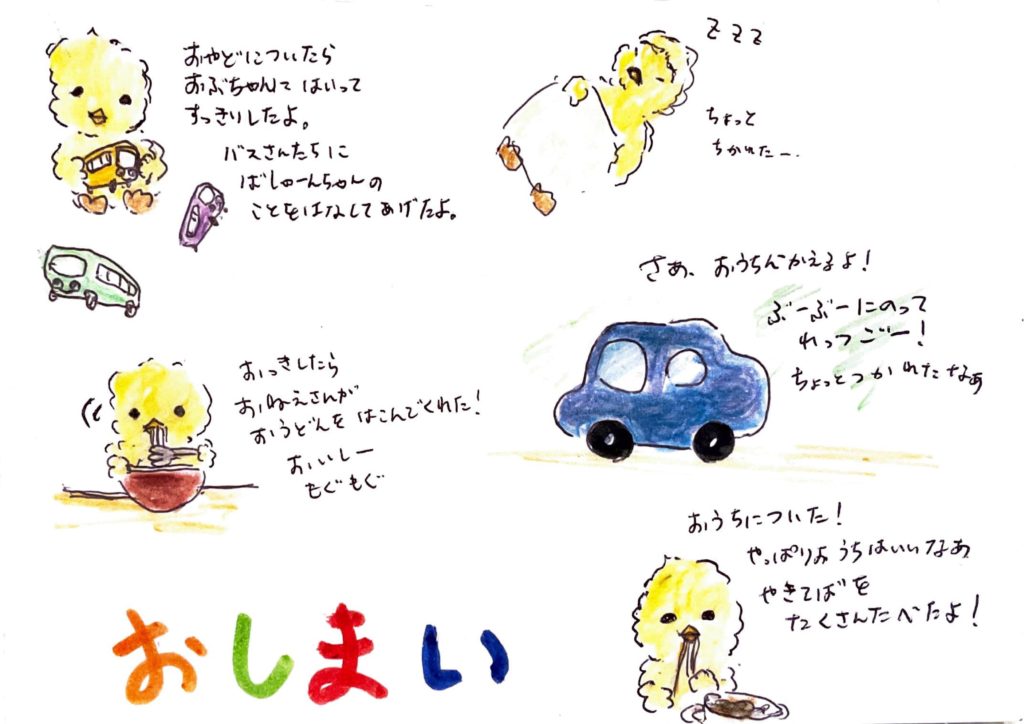 おやどについたら
おぶちゃんて はいって
すっきりしたよ。
バスさんたちに
ばしゅーんちゃんの
ことをはなしてあげたよ。
おっきしたら
おねえさんが
おうどんを はこんでくれた!
おいしー
もぐもぐ
zzz
ちょっと
ちかれたー.
さあ、おうちんかえるよ!
ぶーぶーにのって
れっつごー!
ちょっとつかれたなあ
おうちについた!
やっぱりおうちはいいなあ
やきそばを
たくさんたべたよ!
おしまい